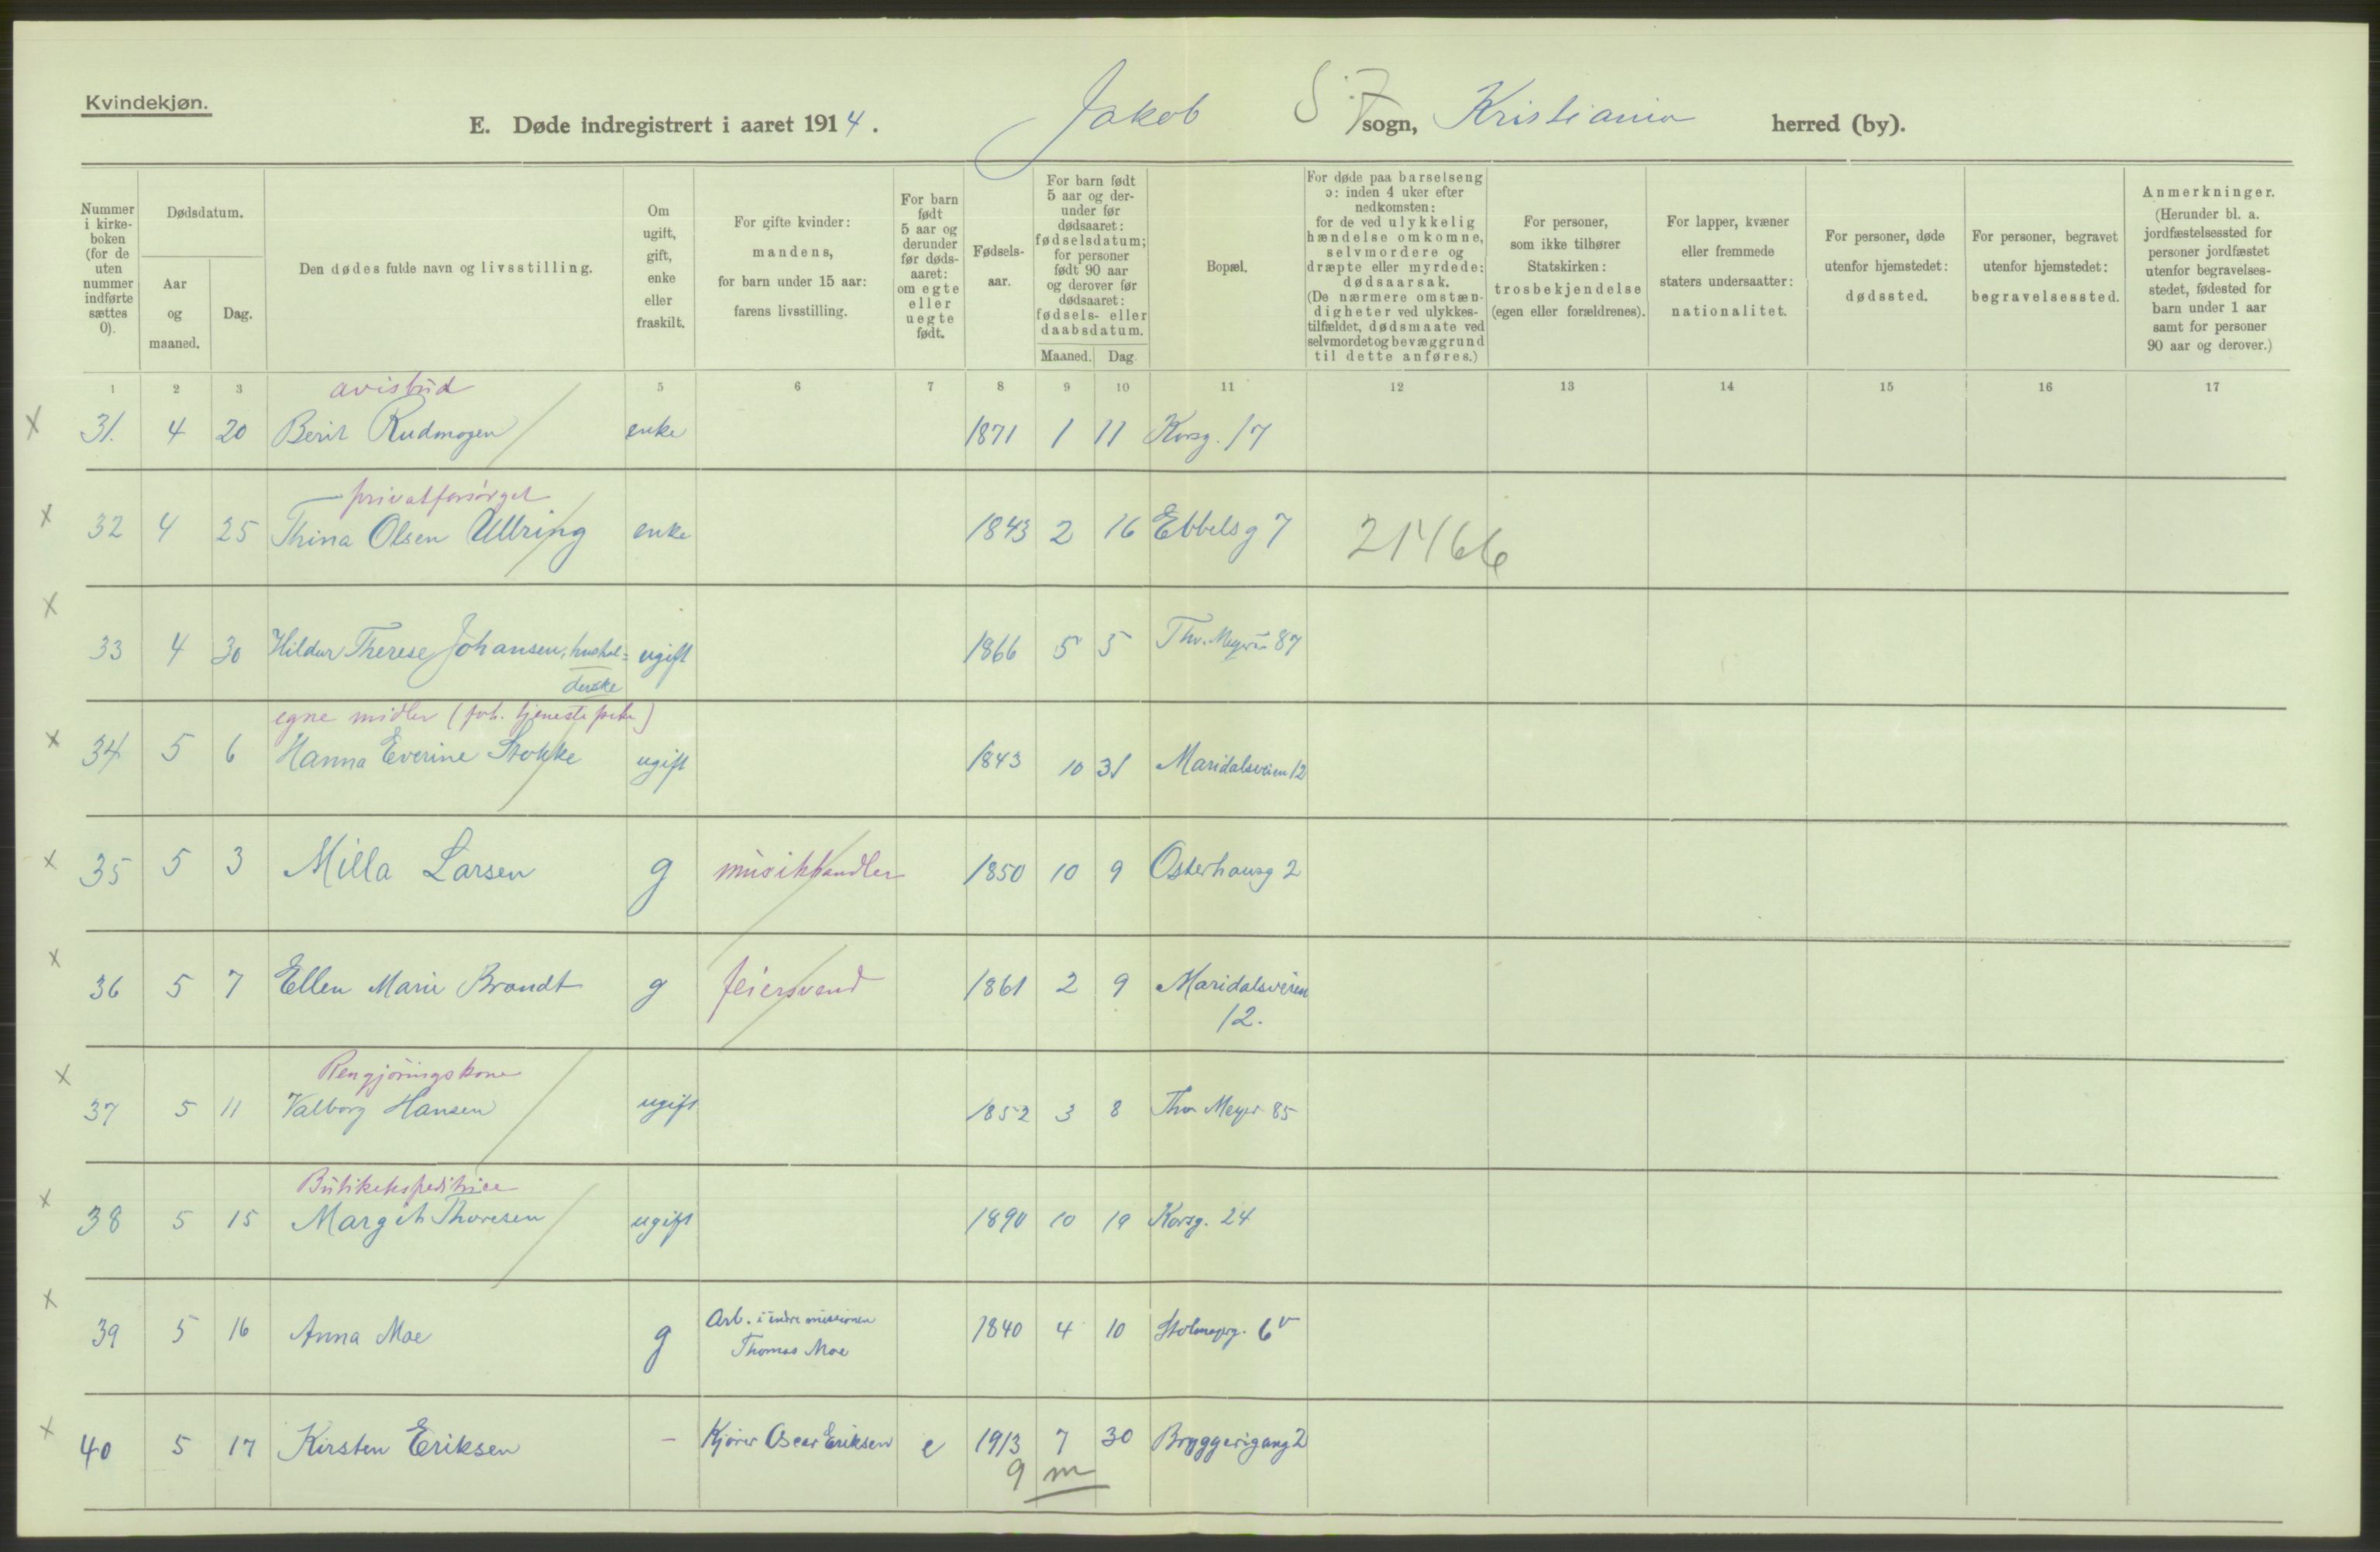 Kvindekjøn.
E. Døde indregistrert i aaret 1914. Jakob sogn, Kristiania herred (by).
Nummer i kirkeboken (for de uten nummer indførte sættes 0).
Dødsdatum.
Aar og maaned.
Dag.
Den dødes fulde navn og livsstilling.
Om ugift, gift, enke eller fraskilt.
For gifte kvinder: mandens, for barn under 15 aar: farens livsstilling.
For barn født 5 aar og derunder før dødsaaret: om egte eller uegte født.
Fødselsaar.
For barn født 5 aar og derunder før dødsaaret: fødselsdatum; for personer født 90 aar og derover før dødsaaret: fødsels- eller daabsdatum.
Maaned. Dag.
Bopæl.
For døde paa barselseng ɔ: inden 4 uker efter nedkomsten: for de ved ulykkelig hændelse omkomne, selvmordere og dræpte eller myrdede: dødsaarsak. (De nærmere omstændigheter ved ulykkestilfældet, dødsmaate ved selvmordet og bevæggrund til dette anføres.)
For personer, som ikke tilhører Statskirken: trosbekjendelse (egen eller forældrenes).
For lapper, kvæner eller fremmede staters undersaatter: nationalitet.
For personer, døde utenfor hjemstedet: dødssted.
For personer, begravet utenfor hjemstedet: begravelsessted.
Anmerkninger. (Herunder bl. a. jordfæstelsessted for personer jordfæstet utenfor begravelsesstedet, fødested for barn under 1 aar samt for personer 90 aar og derover.)
1 2 3 5 6 7 8 9 10 11 12 13 14 15 16 17
avisbud
x 31. 4 20 Berit Rudmogen enke 1871 1 11 Korsg. 17
privatforsørget
x 32 4 25 Thina Olsen Ullring enke 1843 2 16 Ebbelsg 7 21466
x 33 4 30 Hildur Therese Johansen, hushol= ugift 1866 5 5 Thv. Meyers 87
derske
egne midler (forh. tjenestepike)
x 34 5 6 Hanna Everine Stokke ugift 1843 10 31 Maridalsveien 12
x 35 5 3 Milla Larsen g musikhandler 1850 10 9 Osterhausg 2
x 36 5 7 Ellen Marie Brandt g feiersvend 1861 2 9 Maridalsveien
12.
Rengjøringskone
x 37 5 11 Valborg Hansen ugift 1852 3 8 Thv Meyer 85
Butikekspeditrice
x 38 5 15 Margit Thoresen ugift 1890 10 19 Korsg. 24
x 39 5 16 Anna Moe g Arb. i indre missionen 1840 4 10 Stolmagerg. 6
Thomas Moe
x 40 5 17 Kirsten Eriksen - Kjører Oscar Eriksen e 1913 7 30 Bryggerigang 2
9 m